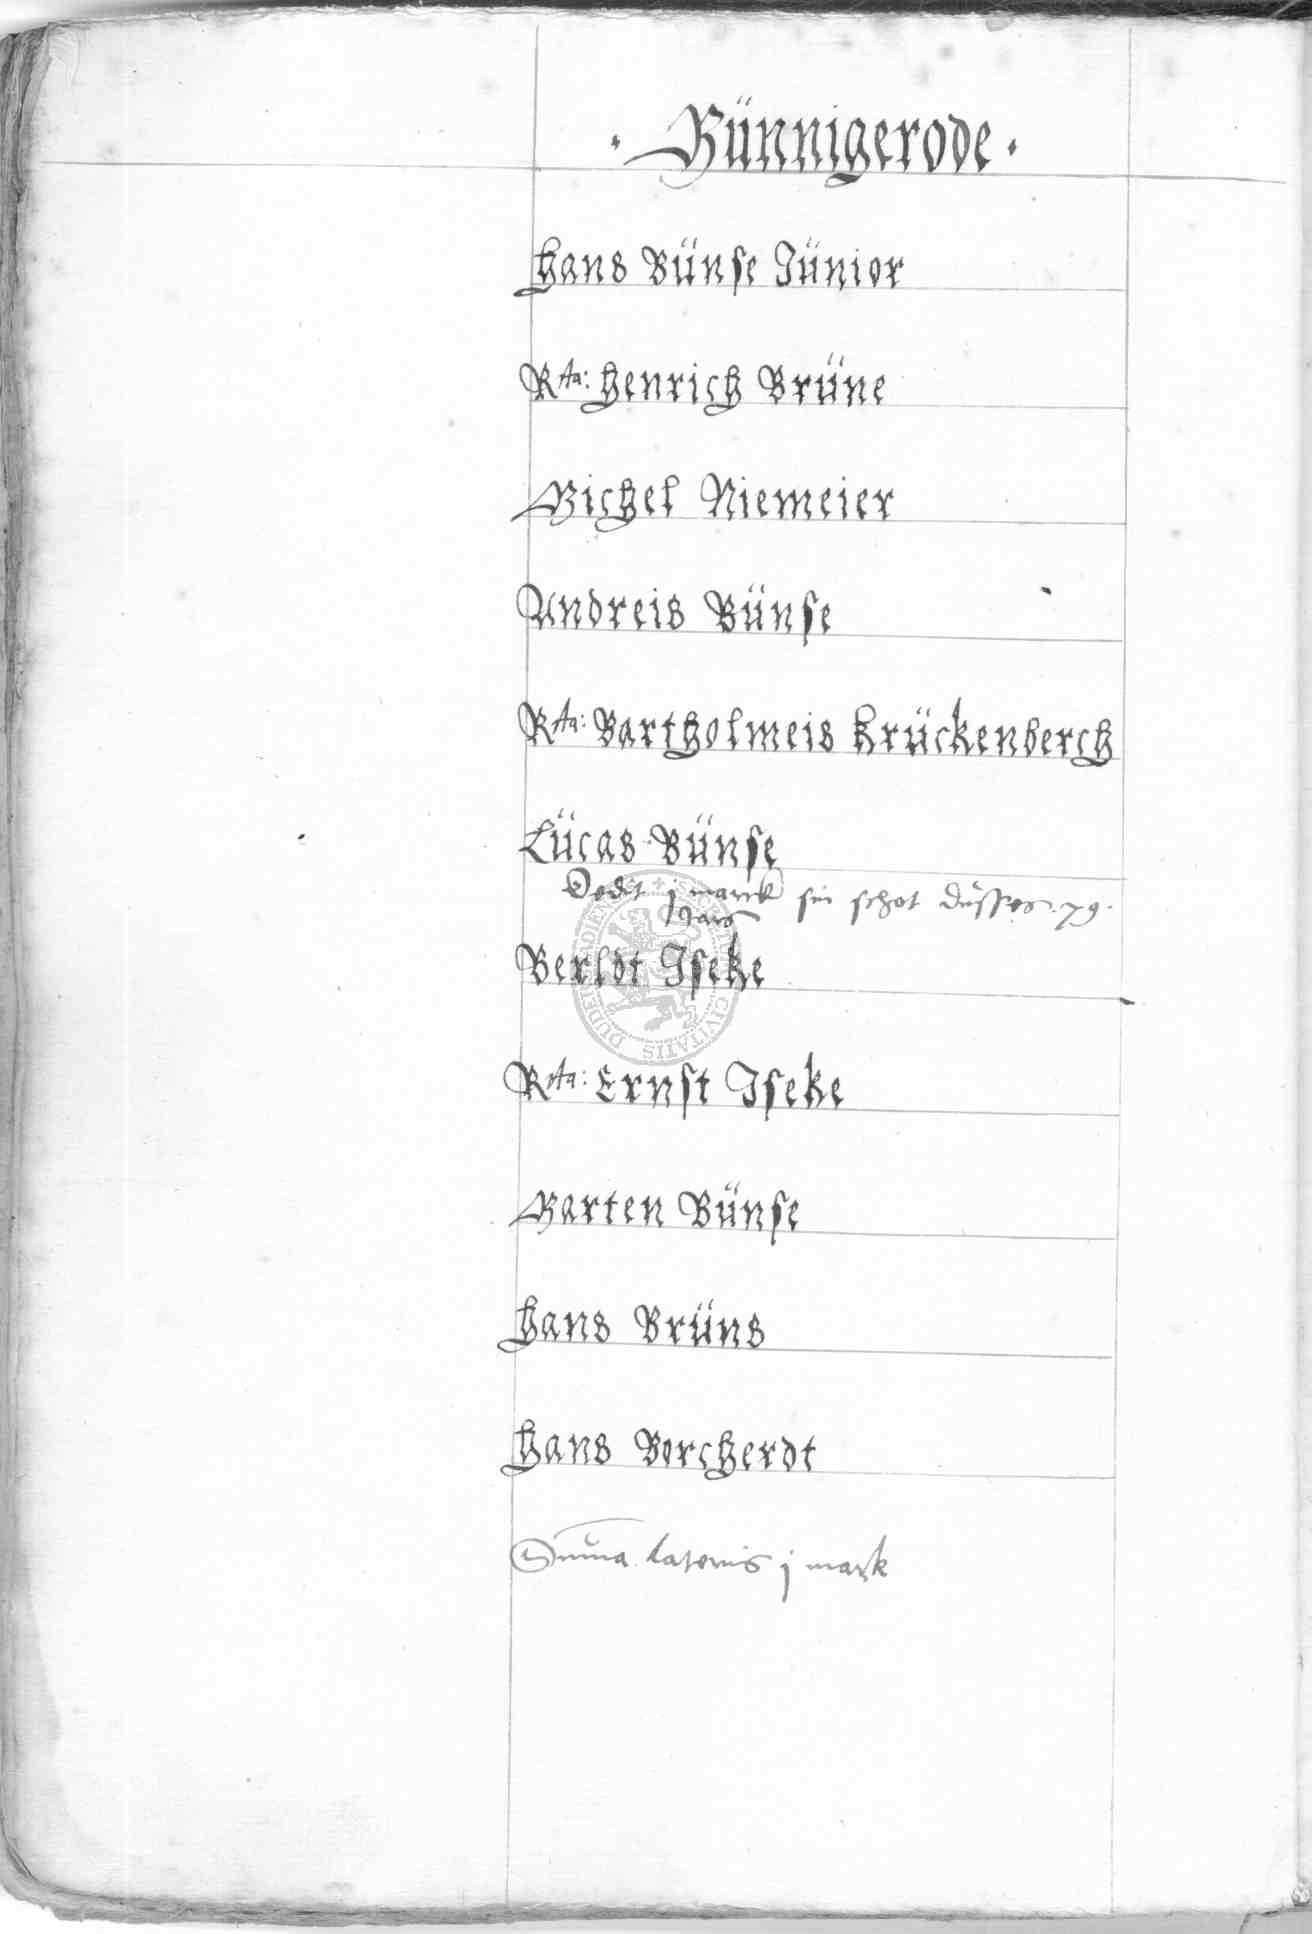 · Bünnigerode ·
Hans Bünse Jünior
Rta: Henrich Brüne
Michel Niemeier
Andreis Bünse
Rta: Bartholmeis Krückenberch
Lücas Bünse
Dedit j marck sin schot düsses 79.
Jars
Berldt Iseke
Rta: Ernst Iseke
Marten Bünse
Hans Brüns
Hans Borcherdt
Summa lateris j mark